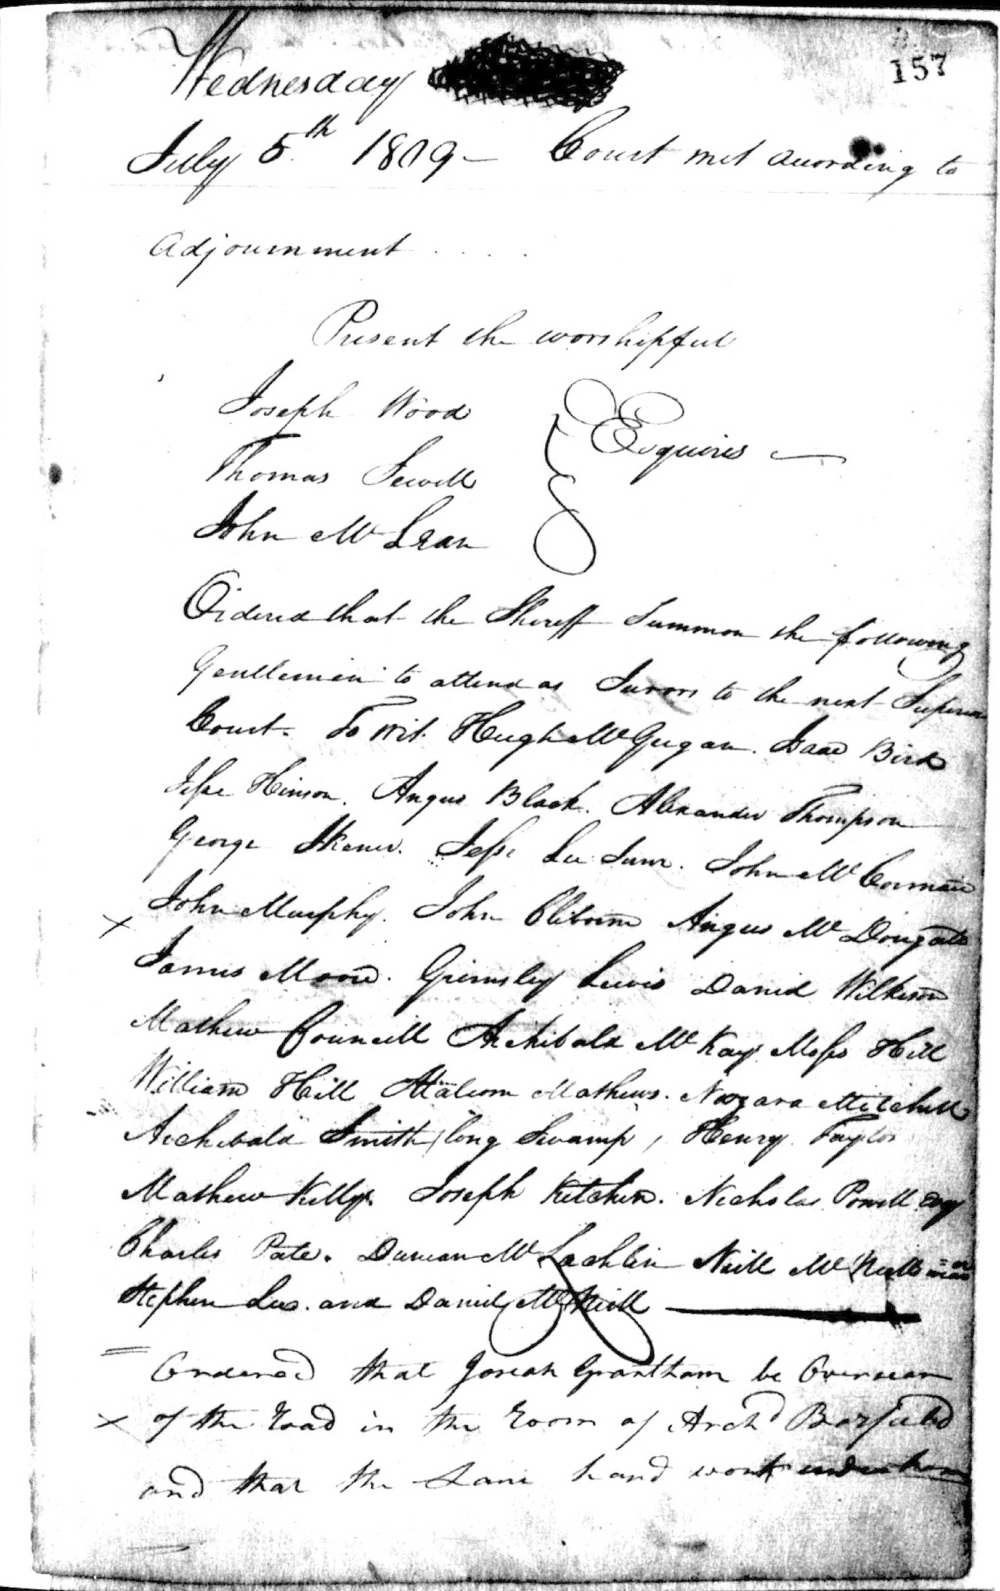 157
Wednesday
July 5th 1809 – Court met according to
adjournment . . . .
Present the worshipful
Joseph Wood
Thomas Sewell
John Mc Lean
Esquires
Ordered that the Shereff Summon the following
Gentlemen to attend as Jurors to the next Superior
Court. To wit. Hugh McGugan. Isaac Bird
Jesse Hinson. Angus Black. Alexander Thompson
George Skener. Jesse Lee Junr. John McCormain
John Murphy. John Cliborn Angus Mc Dougald
James Moore. Grimsley Lewis Daniel Wilkison
Mathew Councill Archibald Mc Kay Moss Hill
William Hill Malcom Mathews. Nazara Mitchell
Archibald Smith (long Swamp, Henry Taylor
Mathew Kelly. Joseph Kitchen. Nicholas Powell Esqr
Charles Pate. Duncan McLachlin Neill McNeill
Stephen Lee. and Daniel McNeill
Ordered that Josiah Grantham be Overseer
of the road in the room of Archd Barfield
and that the Same hand work under him